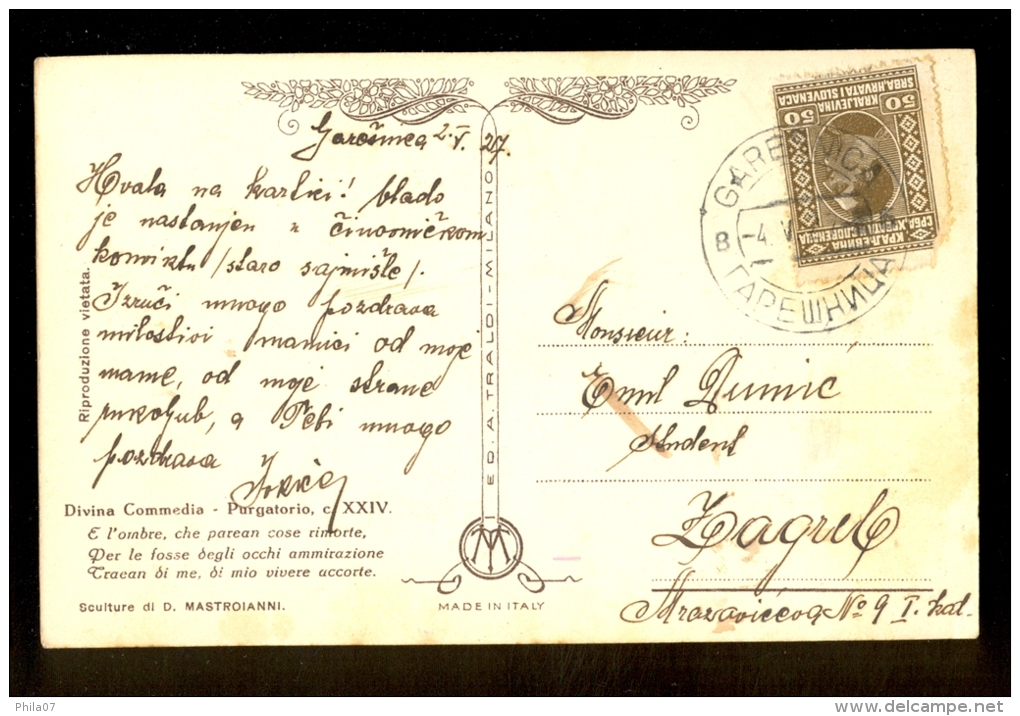 Garešnica 2. V. 27.
Hvala na karlici! Vlado
je nastanjen u činovničkom
konviktu /staro sajmište/.
Izruči mnogo pozdrava
milostivi mamici od moje
mame, od moje strane
rukoljub, a Tebi mnogo
pozdrava
Divina Commedia - Purgatorio, c. XXIV.
E l'ombre, che parean cose rimorte,
Per le fosse degli occhi ammirazione
Traean di me, di mio vivere accorte.
Sculture di D. MASTROIANNI.
Riproduzione vietata.
ED. A. TRALDI - MILANO
MADE IN ITALY
50 50
KRALJEVINA
SRBA, HRVATA I SLOVENACA
КРАЉЕВИНА
СРБА, ХРВАТА И СЛОВЕНАЦА
GAREŠNICA
B
ГАРЕШНИЦА
Monsieur:
Emil Dumić
student
Zagreb
Mrazovićeva No 9 I. kat.
Phila07
delcampe.net